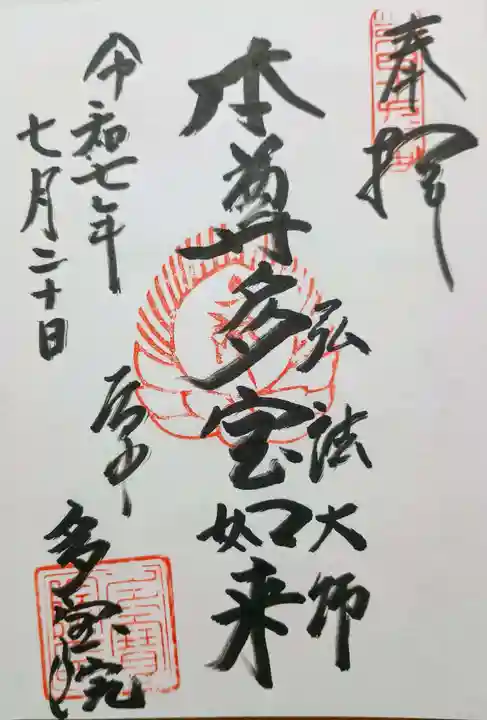 奉拝
弘法大師
本尊多宝如来
令和七年
七月二十日
多宝院